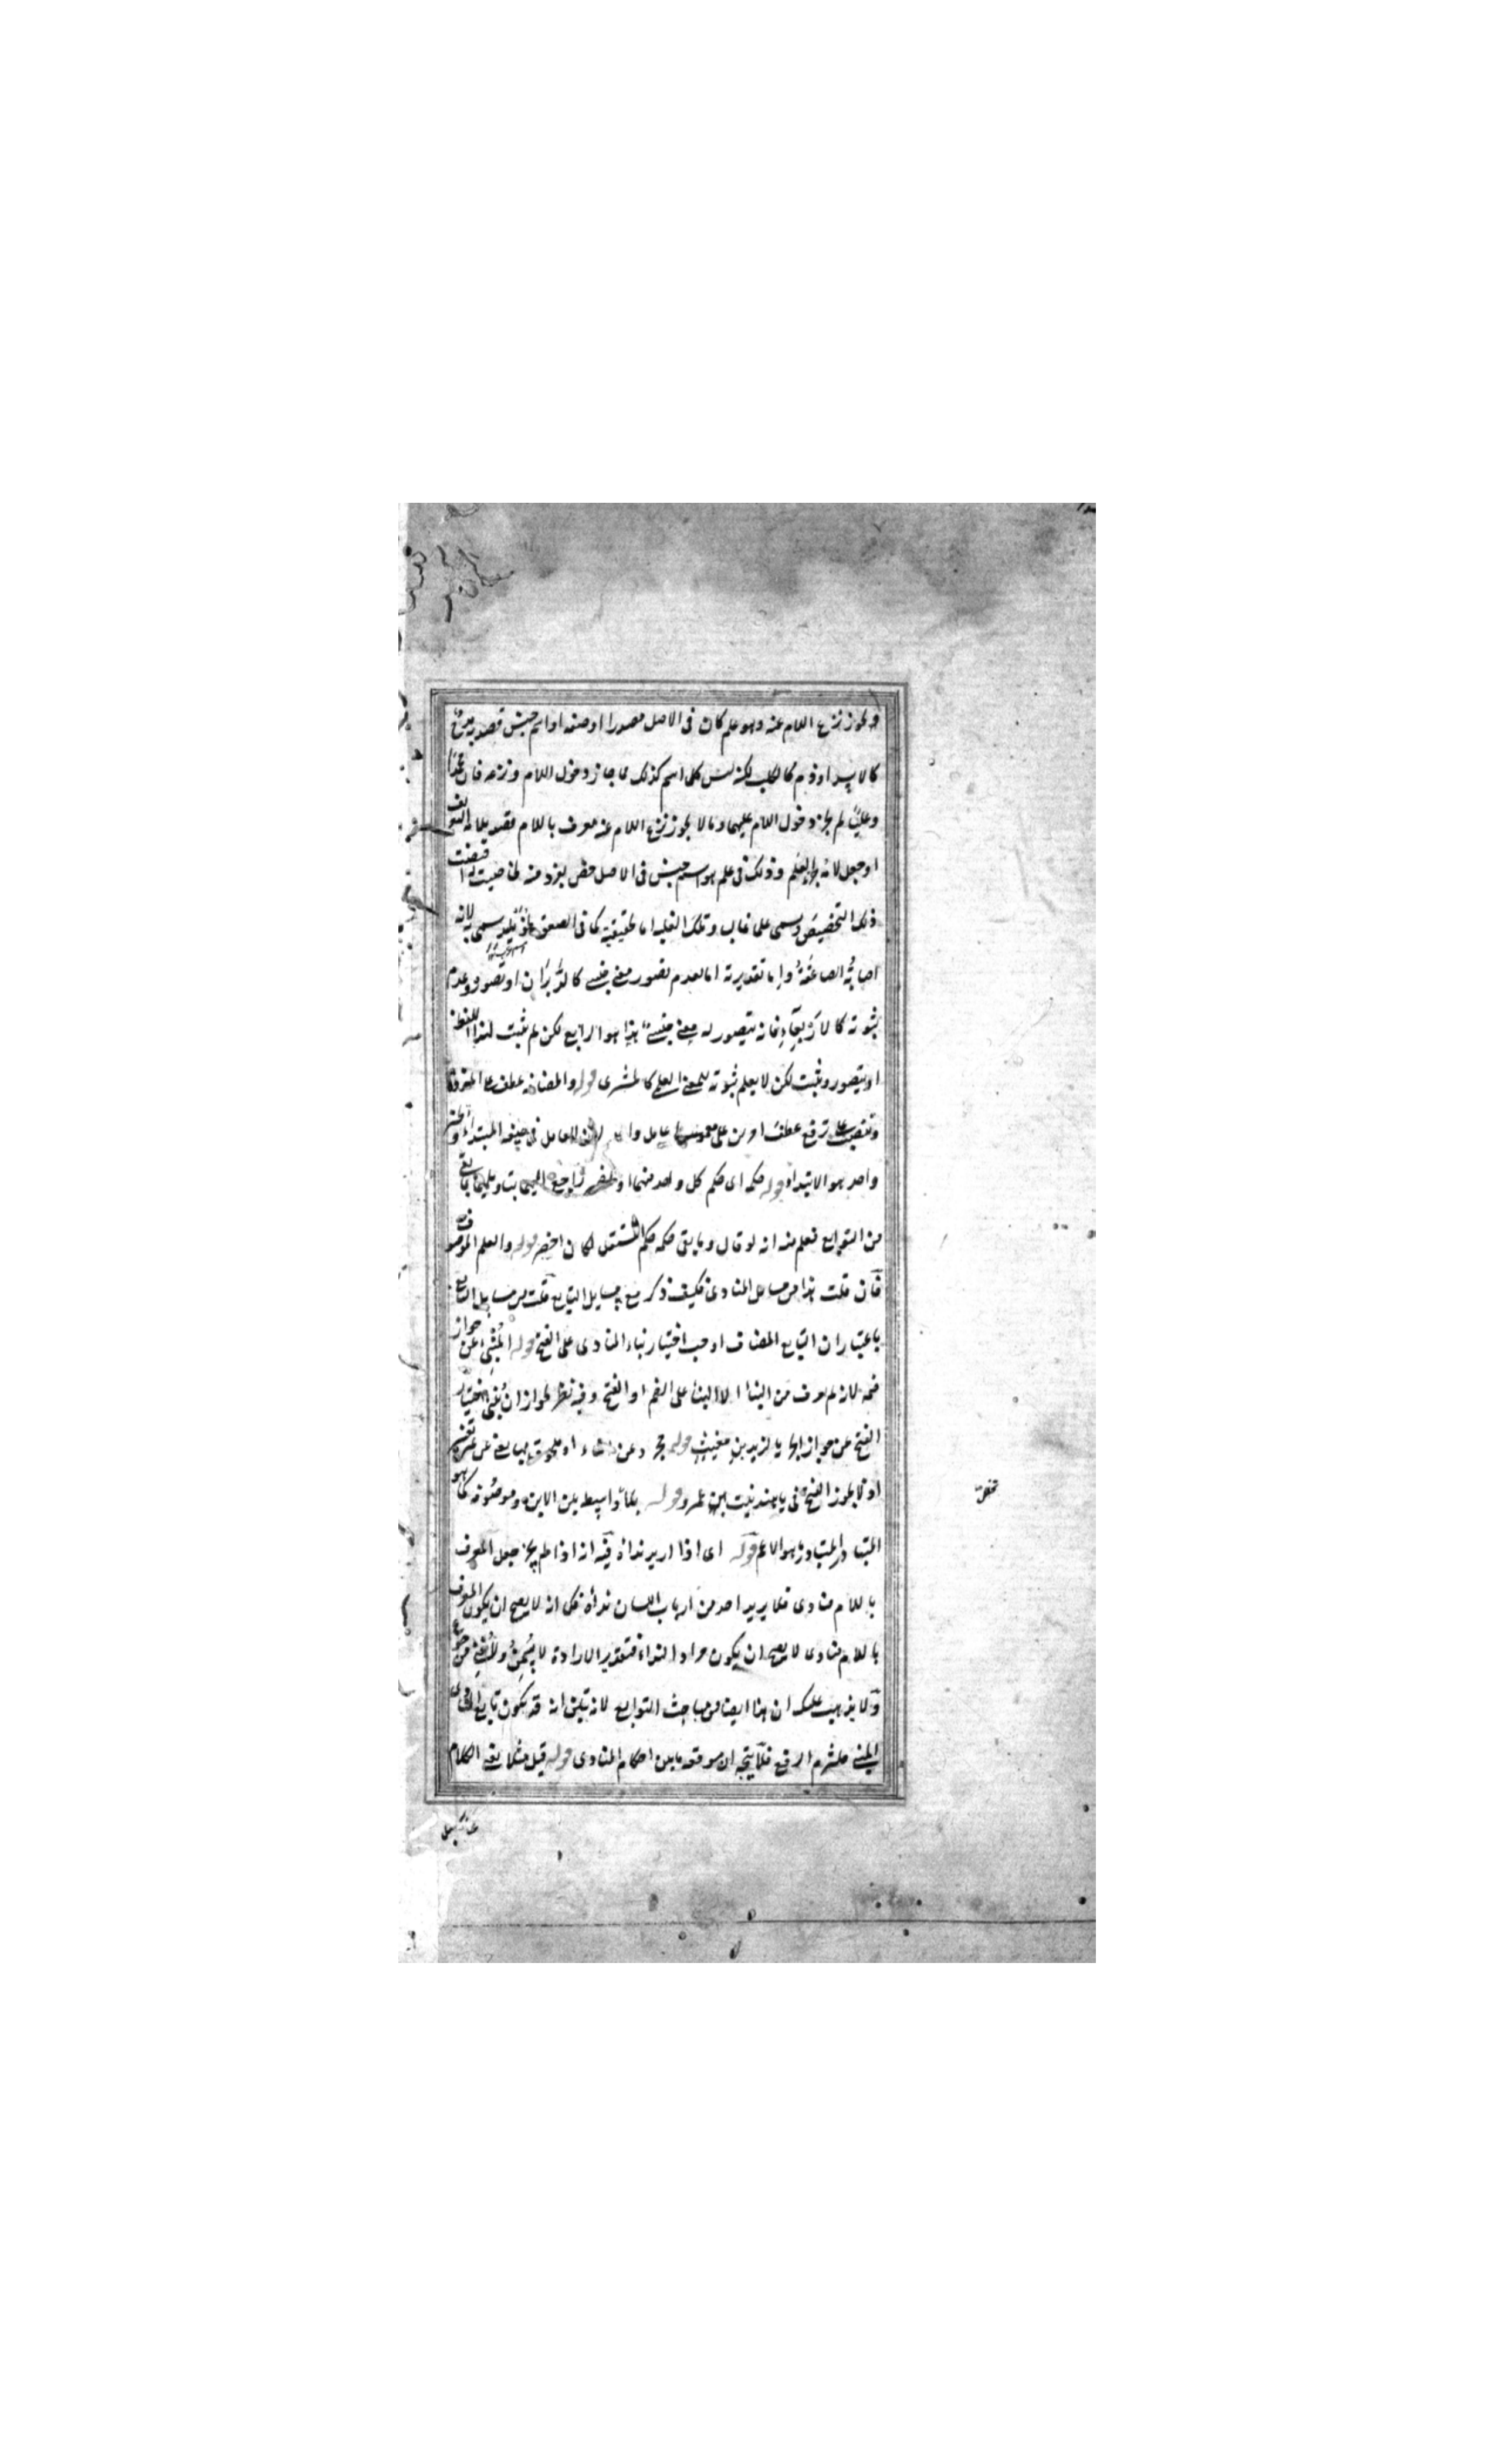 ما يجوز نزع اللام عنه وهو علم كان فى الاصل مصدرا او صفة او اسم جنس قصد به مدح
كالاسد او ذم كالكلب لكنه ليس كل اسم كذلك مما جاز دخول اللام ونزعه فان محمدا
وعليا لم يجز دخول اللام عليهما وما لا يجوز نزع اللام عنه معرف باللام قصد به التعريف
او جعل لانه العلم وذلك فى علم هو اسم جنس فى الاصل خص بفرد منه لخاصيت اقتضت
ذلك التخصيص ويسمى علما غالبا وتلك الغلبة اما حقيقية كما فى الصعق سمى به لانه
اصابته الصاعقة واما تقديرية اما لعدم تصور معنى جنسى كالدبران او تصوره وعدم
ثبوته كالاربعاء فانه يتصور له معنى جنسى هذا هو الرابع لكن لم يثبت لهذا اللفظ
او يتصور ويثبت لكن لا يعلم ثبوته للمعنى العلمى كالمشترى قوله والمضافة عطف على المفردة
وتنصب على ترفع عطف امرين على معمولى عامل واحد لان العامل فى صيغة المبتدأ والخبر
واحد هو الابتداء قوله حكمه اى حكم كل واحد منهما او الضمير راجع اليهما بتاويلهما بما بقى
من التوابع فعلم منه انه لو قال وما بقى حكمه حكم المستقل لكان اخصر قوله والعلم الموصوف
فان قلت هذا من مسائل المنادى فكيف ذكر مع مسايل التابع قلت من مسايل التابع
باعتبار ان التابع المضاف اوجب اختيار بناء المنادى على الفتح قوله المبنى عن جواز
فتحه لانه لم يعرف من البناء الا البناء على الضم او الفتح وفيه نظر لجواز ان يبنى اختيار
الفتح عن جواز الجر يا لزيد بن مغيث قوله مجرد عن التاء او ملحوق بها يعنى عن غير تغيير
اذ لا يجوز الفتح فى يا هند بنت ابن عمرو قوله بلا واسطة بين الابن وموصوفه كما هو
المتبادر والمتبادر هو الاعم قوله اى اذا اريد نداؤه فيه انه اذا لم يجز جعل المعرف
باللام منادى فلا يريد احد من ارباب اللسان نداءه فكما انه لا يصح ان يكون المعرف
باللام منادى لا يصح ان يكون مراد النداء فتقدير الارادة لا يسمن ولا يغنى من جوع
ولا يذهب عليك ان هذا ايضا من مباحث التوابع لانه تبين انه قد يكون تابع المنادى
المبنى ملتزم الرفع فلا يتجه ان موقعه ما بين احكام المنادى قوله قيل مثلا يعنى الكلام